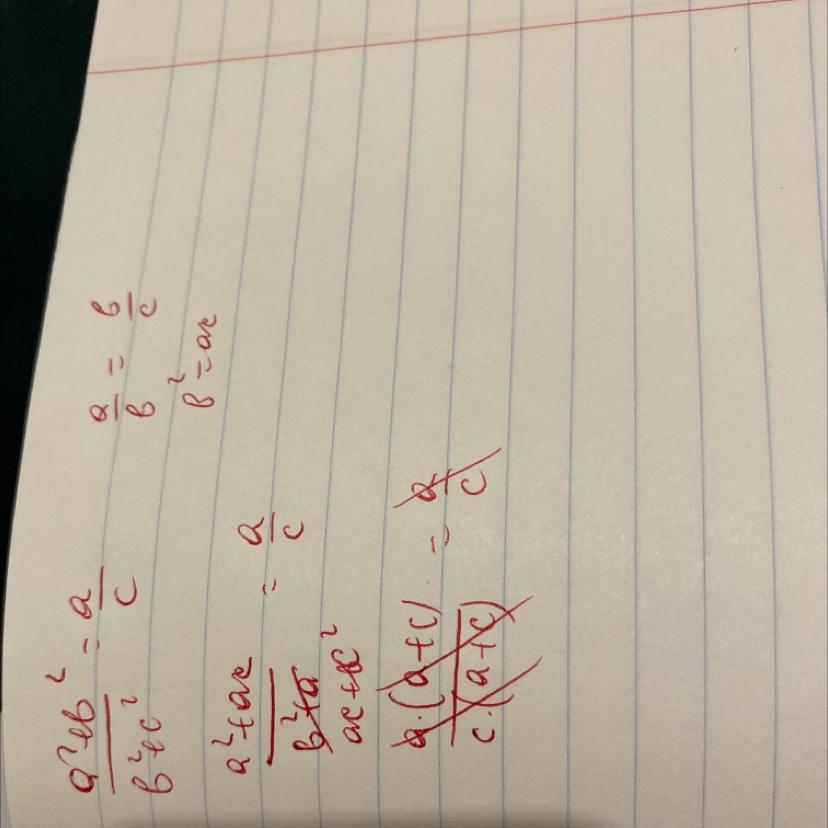 a²+b² / b²+c² = a/c
a/b = b/c
b² = ac
a²+ac / b²+a = a/c
ac+c²
a·(a+c) / c·(a+c) = a/c